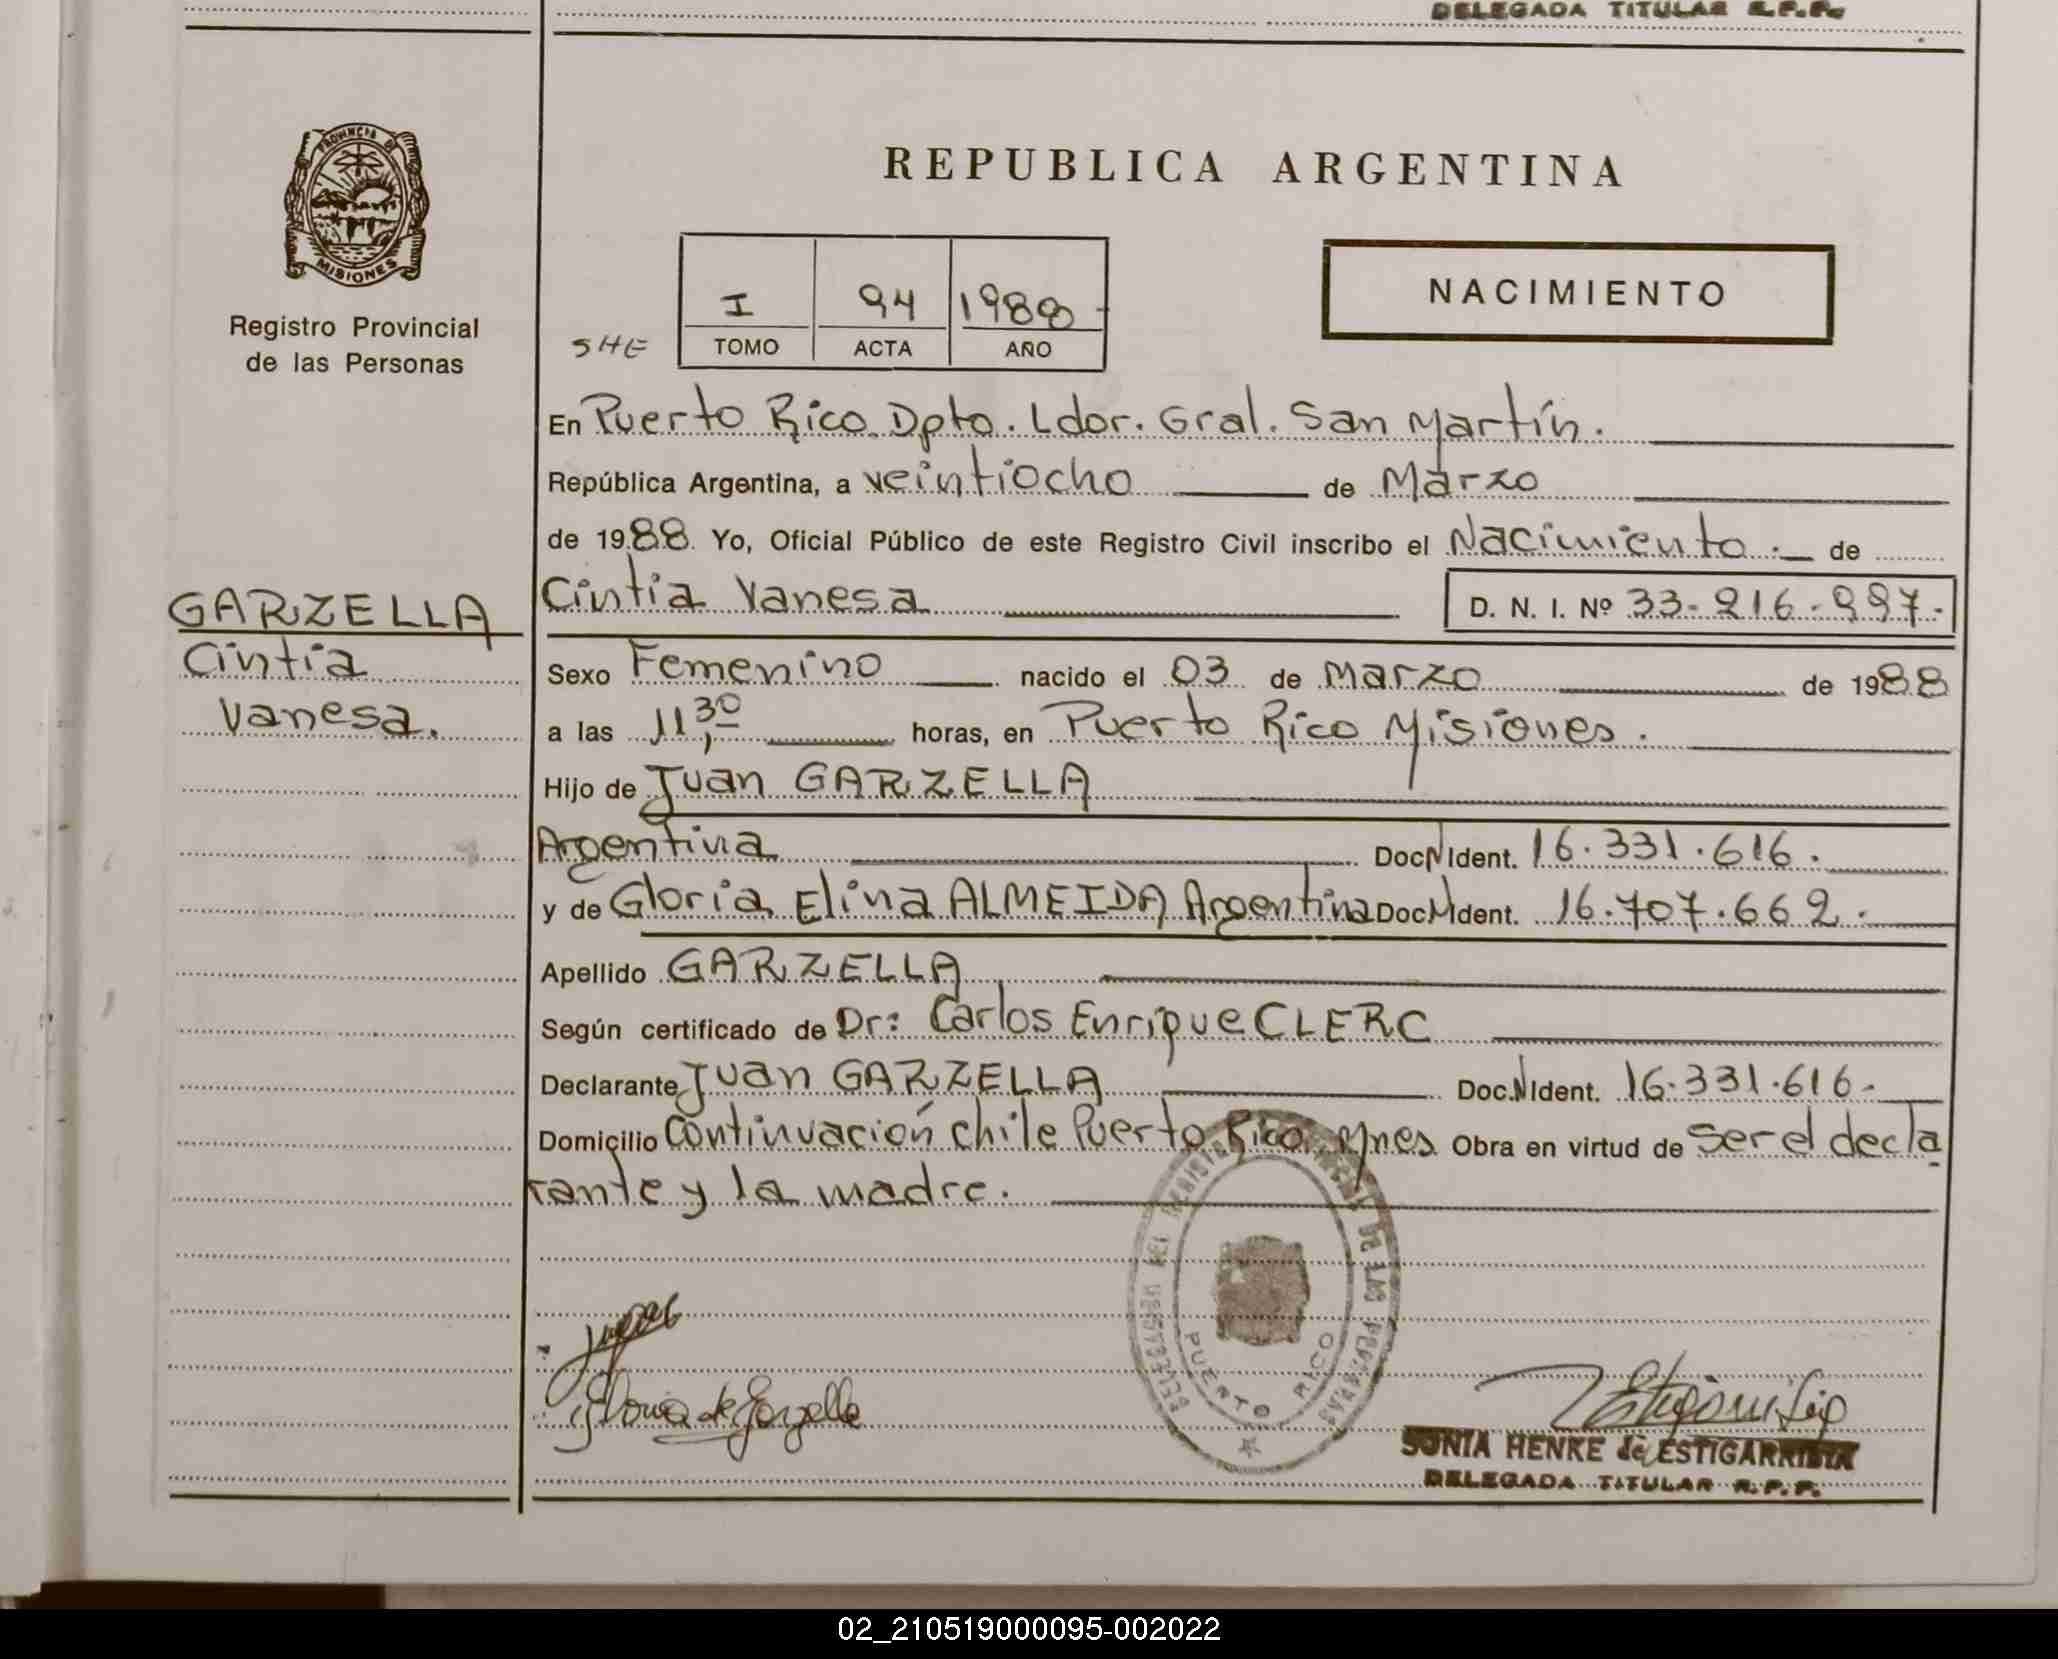 DELEGADA TITULAR R.P.P.
PROVINCIA DE
MISIONES
Registro Provincial
de las Personas
REPUBLICA ARGENTINA
NACIMIENTO
I 94 1988
SHE TOMO ACTA AÑO
En Puerto Rico Dpto. Ldor. Gral. San Martín.
República Argentina, a veintiocho de Marzo
de 1988 Yo, Oficial Público de este Registro Civil inscribo el Nacimiento.- de
Cintia Vanesa D. N. I. Nº 33-216-997.
GARZELLA
Cintia
Vanesa.
Sexo Femenino nacido el 03 de Marzo de 1988
a las 11,30 horas, en Puerto Rico Misiones.
Hijo de Juan GARZELLA
Argentina Doc.N Ident. 16.331.616.
y de Gloria Elina ALMEIDA Argentina Doc.N Ident. 16.707.662.
Apellido GARZELLA
Según certificado de Dr: Carlos Enrique CLERC
Declarante Juan GARZELLA Doc.N Ident. 16.331.616.
Domicilio Continuación Chile Puerto Rico Mnes Obra en virtud de Ser el decla
rante y la madre.
DELEGACION DEL REGISTRO PROVINCIAL DE LAS PERSONAS
PUERTO RICO
Gloria de Garzella
SONIA HENKE de ESTIGARRIBIA
DELEGADA TITULAR R.P.P.
02_210519000095-002022